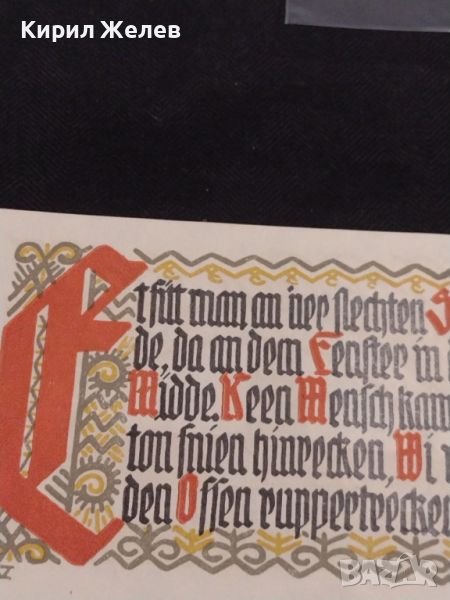 Кирил Желев
Et sitt man an ner slechten S
de, da an dem Fenster in
Midde. Keen Mensch kam
ton snien hinrecken, Wi
den Ossen ruppertrecken
BAZAR